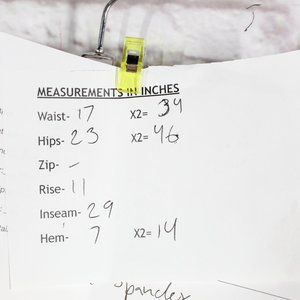 MEASUREMENTS IN INCHES
Waist- 17 X2= 34
Hips- 23 X2= 46
Zip- -
Rise- 11
Inseam- 29
Hem- 7 X2= 14